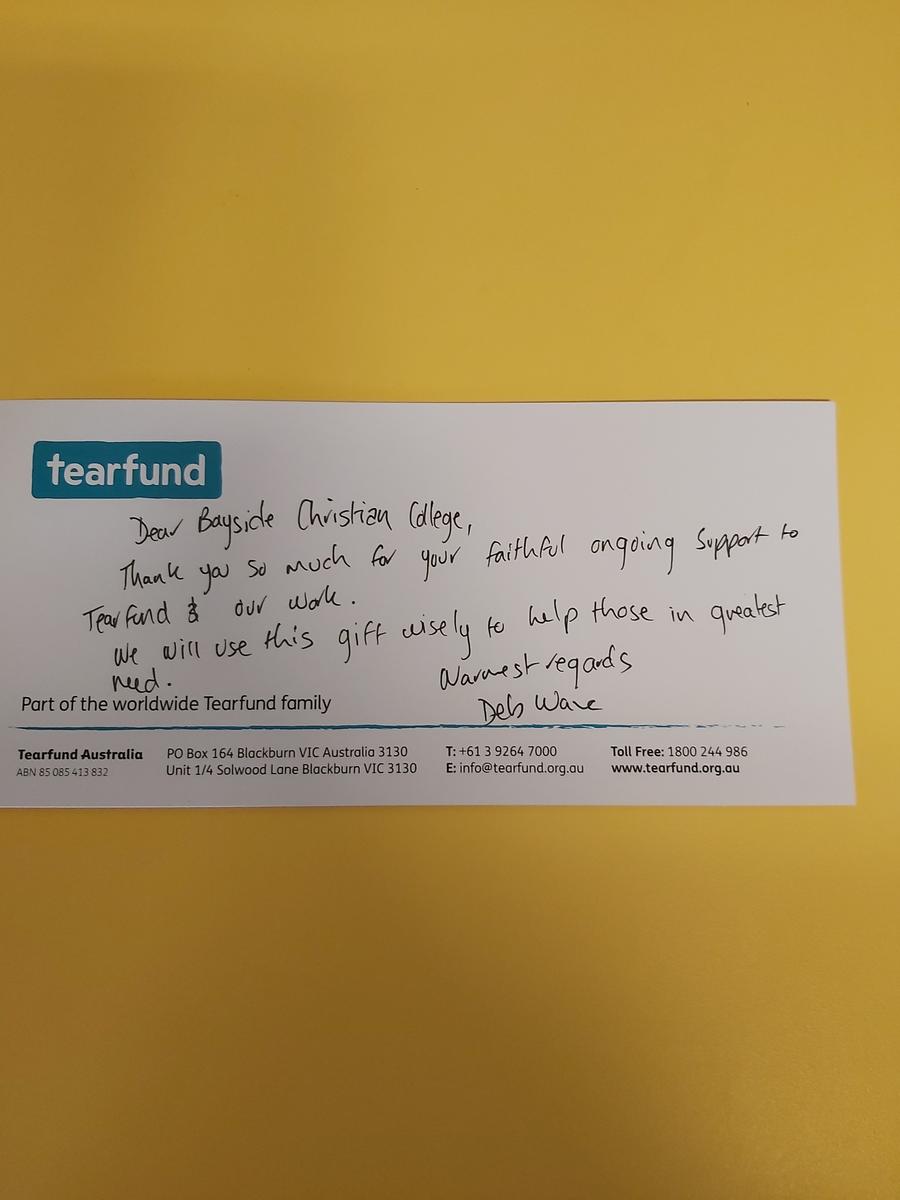 tearfund
Dear Bayside Christian College,
Thank you so much for your faithful ongoing support to
Tearfund & our work.
We will use this gift wisely to help those in greatest
need.
Warmest regards
Deb Ware
Part of the worldwide Tearfund family
Tearfund Australia
ABN 85 085 413 832
PO Box 164 Blackburn VIC Australia 3130
Unit 1/4 Solwood Lane Blackburn VIC 3130
T: +61 3 9264 7000
E: info@tearfund.org.au
Toll Free: 1800 244 986
www.tearfund.org.au